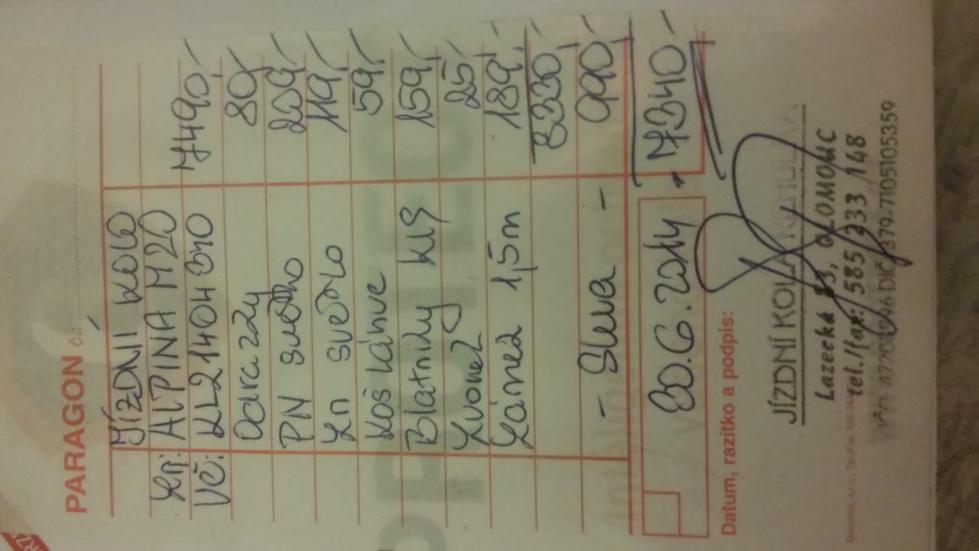 PARAGON č.:
JÍZDNÍ KOLO
ser: ALPINA M20 7490,-
VČ: KL21404340
Odrazky 80,-
PN světlo 209,-
Zn světlo 119,-
Koš láhve 59,-
Blatníky KLS 159,-
Zvonek 25,-
Zámek 1,5m 189,-
8330,-
- Sleva - 990,-
30.6.2014 7340,-
Datum, razítko a podpis:
JÍZDNÍ KOLA
Lazecká OLOMOUC
tel./fax: 585 233 148